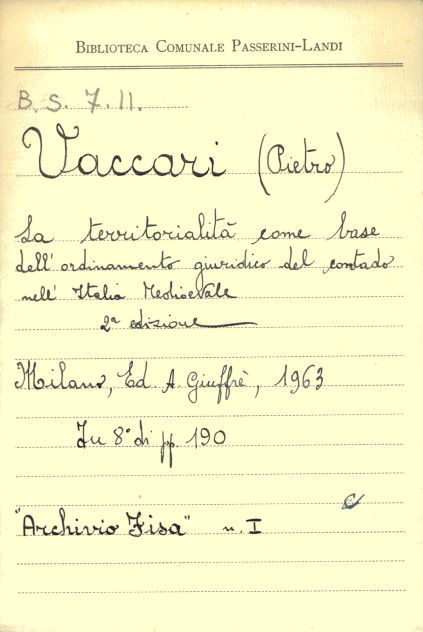 BIBLIOTECA COMUNALE PASSERINI-LANDI
B. S. 7. II.
Vaccari (Pietro)
La territorialità come base
dell'ordinamento giuridico del contado
nell'Italia Medioevale
2ª edizione
Milano, Ed. A. Giuffrè, 1963
In 8° di pp. 190
"Archivio Fisa" n. I